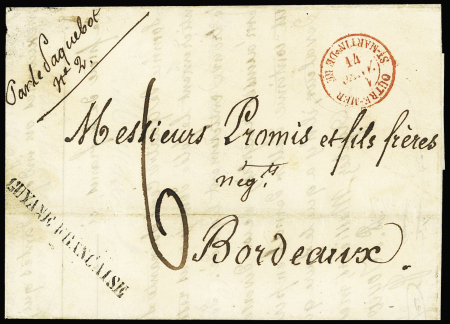 Par le Paquebot
n° 2.
OUTRE-MER
ST-MARTIN-DE-RÉ
14
Messieurs Promis et fils frères
négts
6
Bordeaux.
GUYANE FRANÇAISE